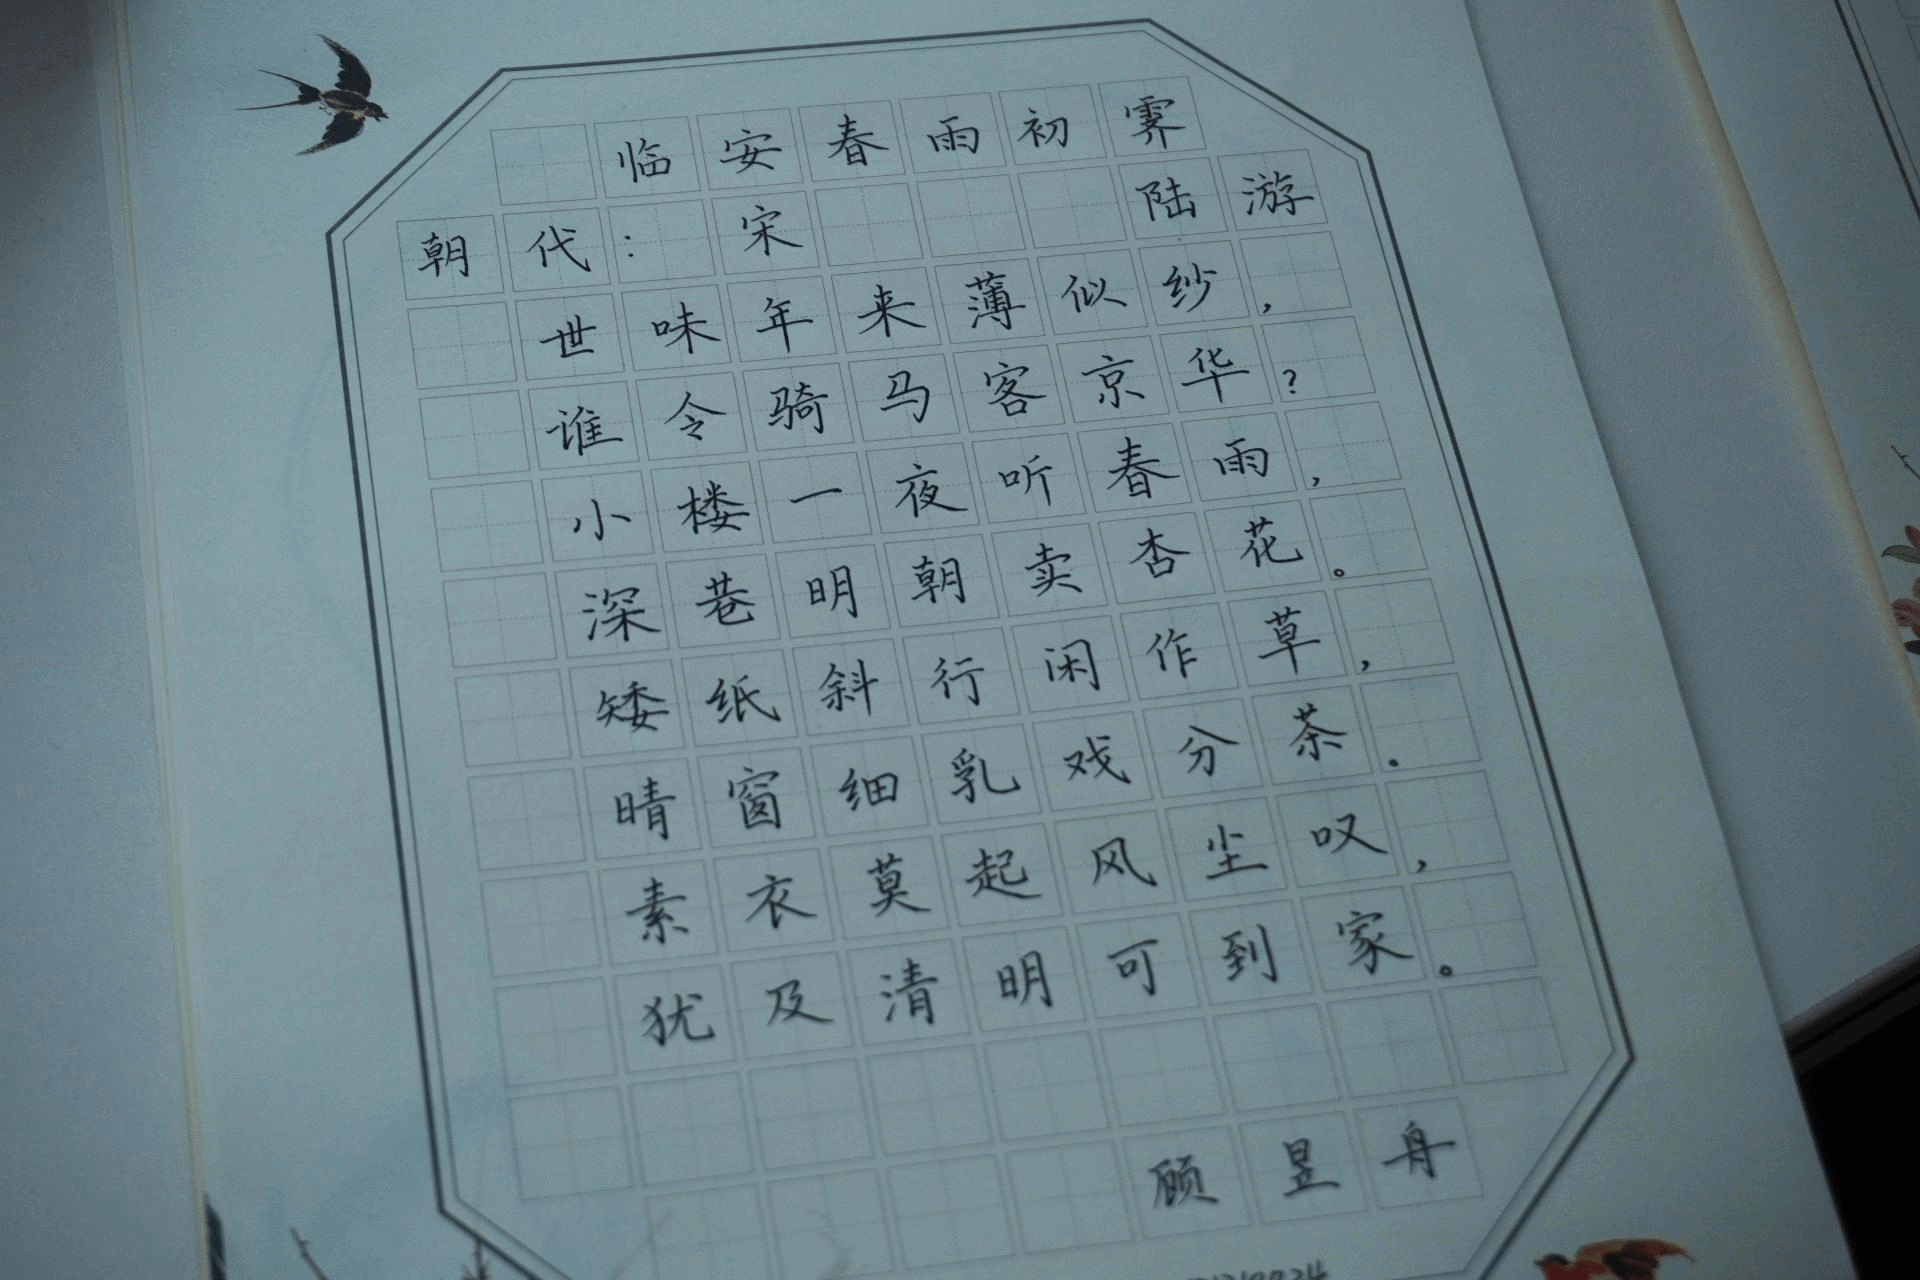 临安春雨初霁
朝代: 宋 陆游
世味年来薄似纱,
谁令骑马客京华?
小楼一夜听春雨,
深巷明朝卖杏花。
矮纸斜行闲作草,
晴窗细乳戏分茶.
素衣莫起风尘叹,
犹及清明可到家。
顾昱舟